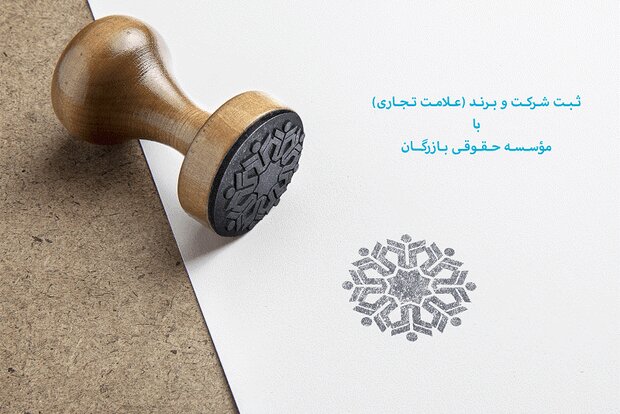 ثبت شرکت و برند (علامت تجاری)
با
مؤسسه حقوقی بازرگان